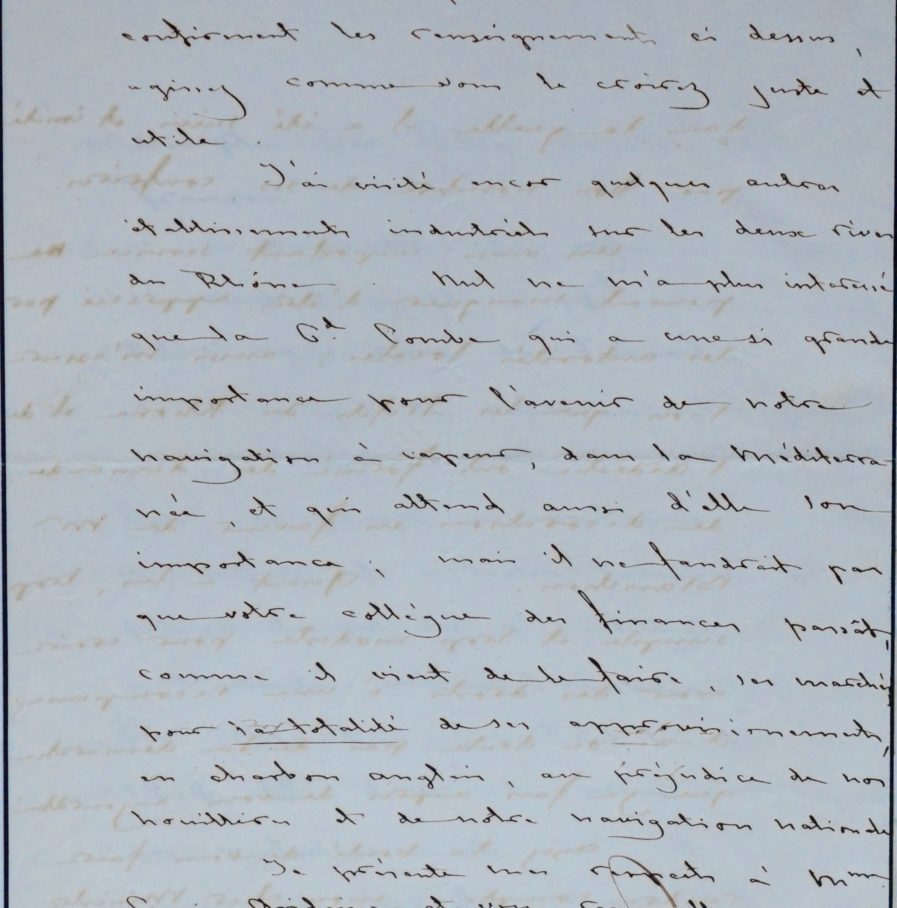 confirment les renseignements ci dessus,
agissez comme vous le croirez juste et
utile.
J'ai visité encor quelques autres
établissements industriels sur les deux rives
du Rhône. Nul ne m'a plus interessé
que la Gd Combe qui a une si grande
importance pour l'avenir de notre
navigation à vapeur, dans la Méditerra-
née, et qui attend aussi d'elle son
importance; mais il ne faudrait pas
que votre collègue des finances passât,
comme il vient de le faire, ses marchés
pour la totalité de ses approvisionnements,
en charbon anglais, au préjudice de nos
houillères et de notre navigation nationale
Je présente mes respects à Mme